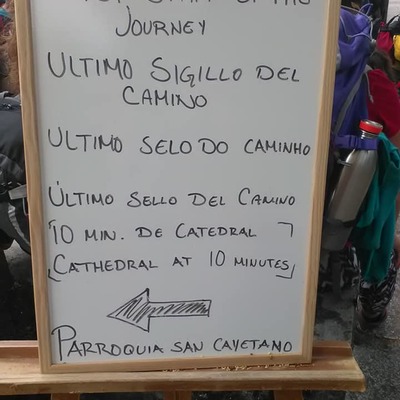 JOURNEY
ULTIMO SIGILLO DEL
CAMINO
ULTIMO SELO DO CAMINHO
ÚLTIMO SELLO DEL CAMINO
10 MIN. DE CATEDRAL
CATHEDRAL AT 10 MINUTES
PARROQUIA SAN CAYETANO